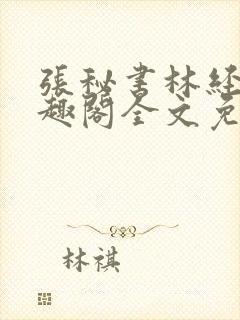 張秘書林経
趣閣全文免
林祺